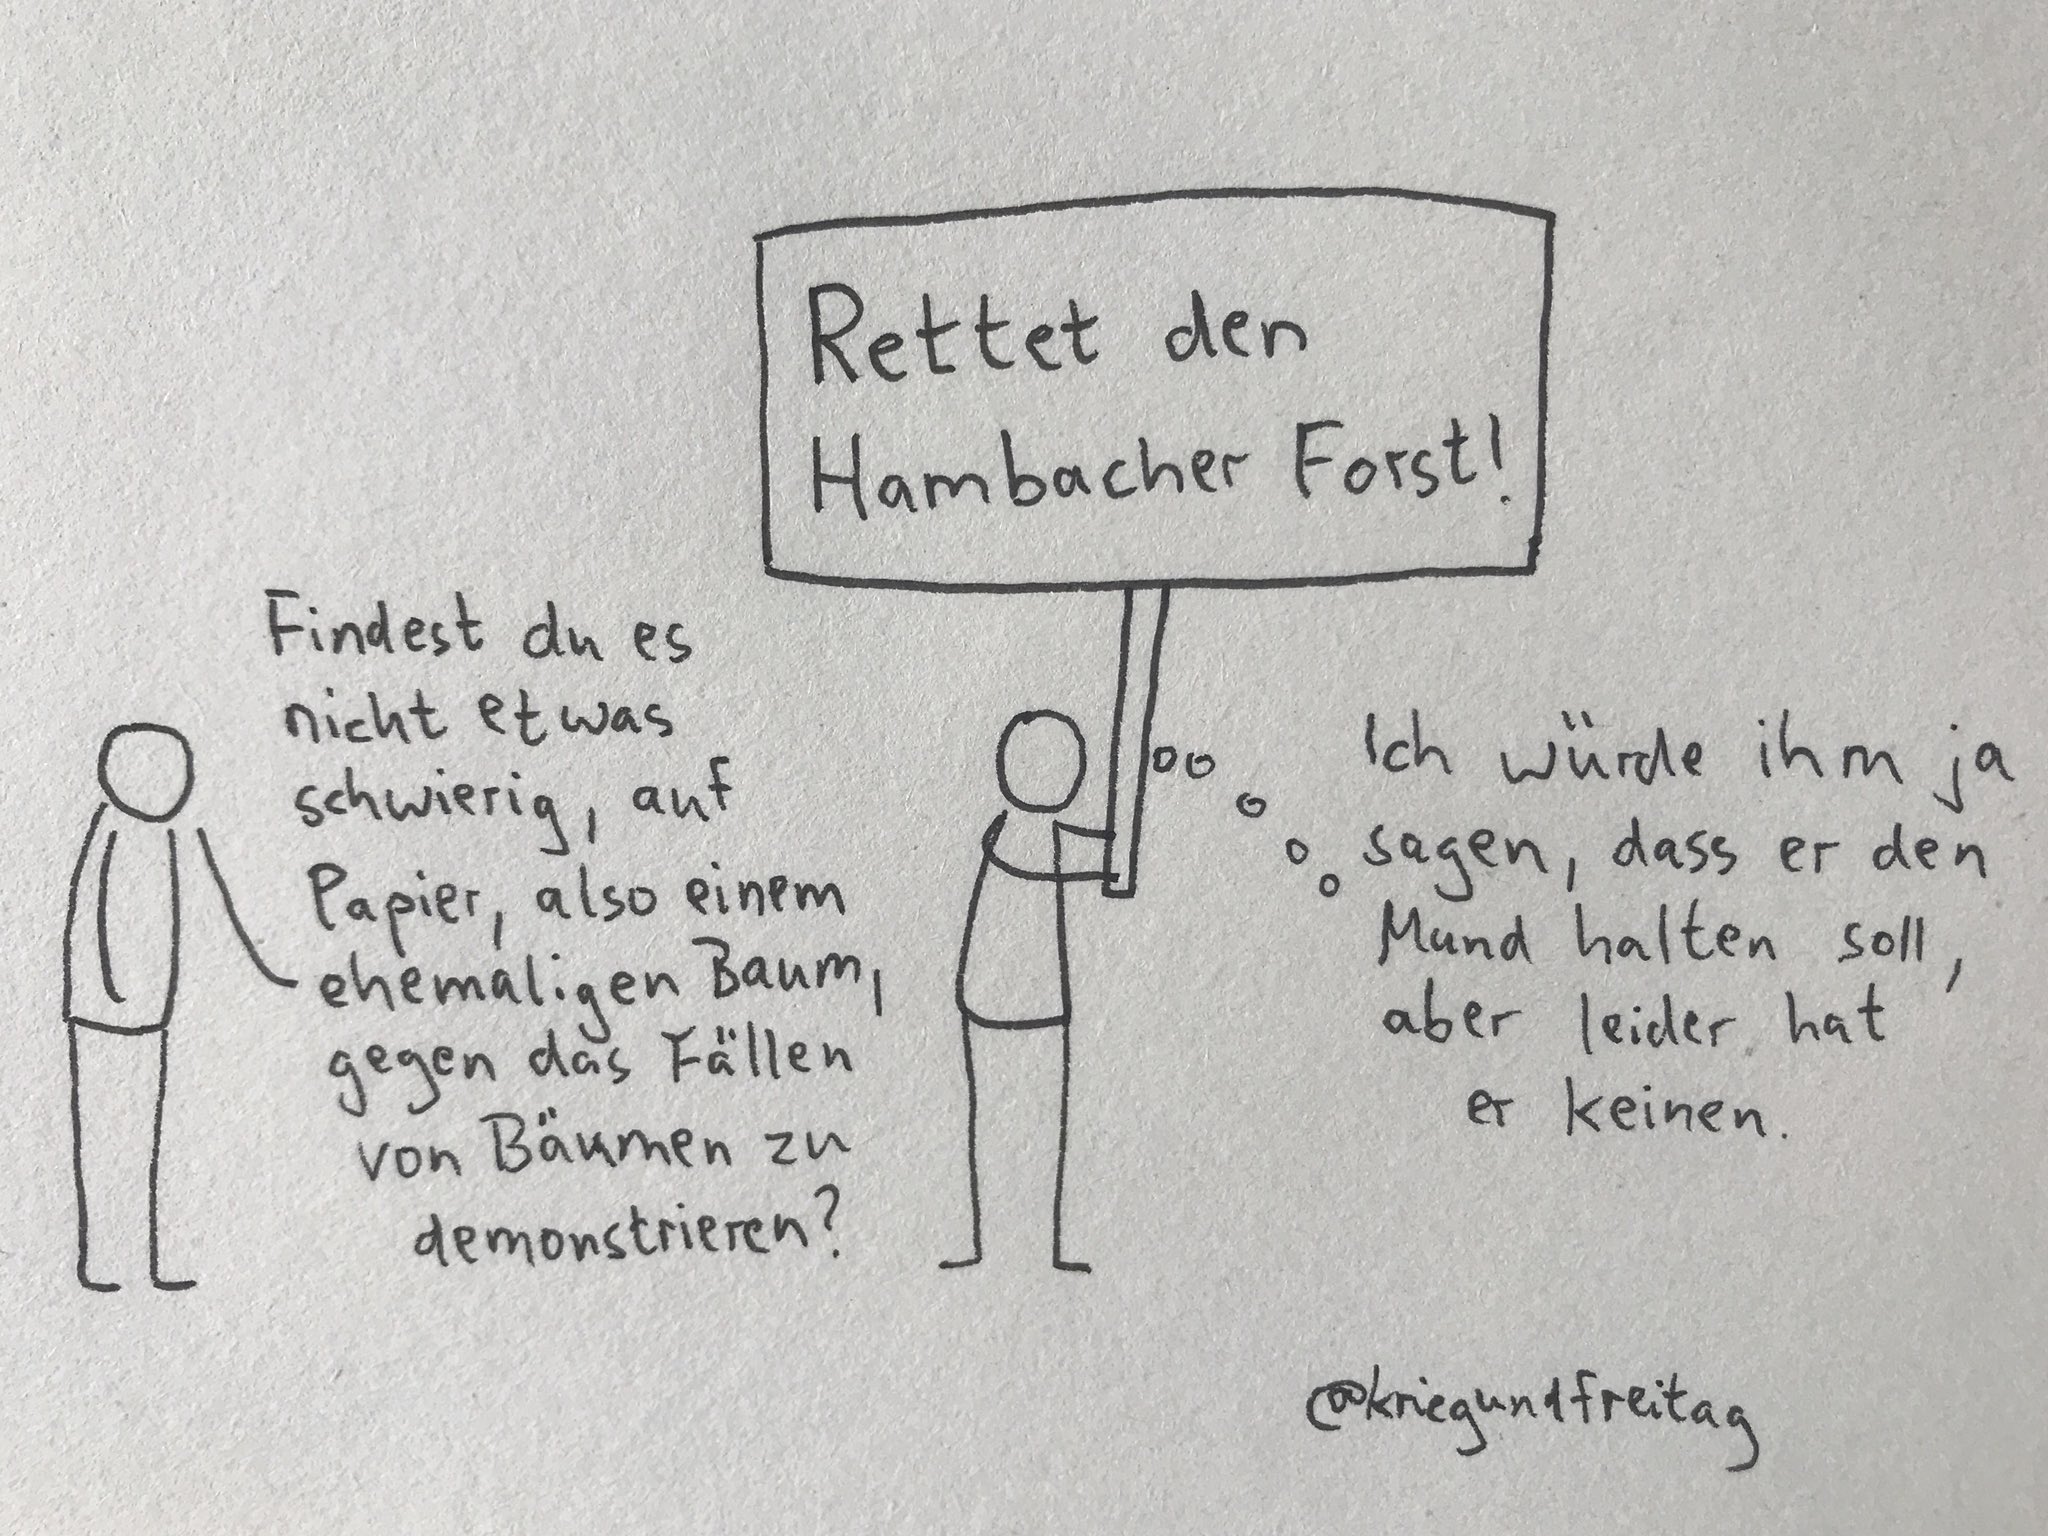 Rettet den
Hambacher Forst!
Findest du es
nicht etwas
schwierig, auf
Papier, also einem
ehemaligen Baum,
gegen das Fällen
von Bäumen zu
demonstrieren?
Ich würde ihm ja
sagen, dass er den
Mund halten soll,
aber leider hat
er keinen.
@kriegundfreitag